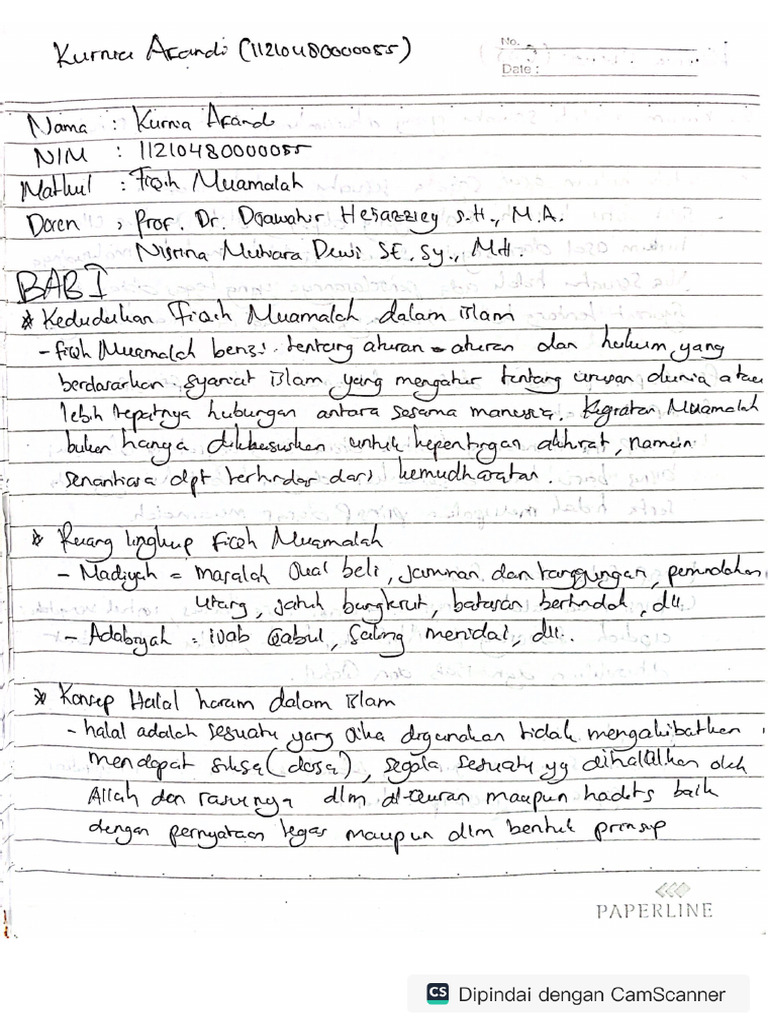 Kurnia Arandi (11210480000055)
No.
Date :
Nama : Kurnia Arandi
NIM : 11210480000055
Matkul : Fiqih Muamalah
Dosen : Prof. Dr. Djawahir Hejazziey S.H., M.A.
Nisrina Mutiara Dewi SE. Sy., M.H.
BAB I
* Kedudukan Fiqih Muamalah dalam Islam
- fiqh Muamalah berisi tentang aturan-aturan dan hukum yang
berdasarkan syariat Islam yang mengatur tentang urusan dunia atau
lebih tepatnya hubungan antara sesama manusia. Kegiatan Muamalah
bukan hanya dikhususkan untuk kepentingan akhirat, namun
senantiasa dpt terhindar dari kemudharatan.
* Ruang lingkup Fiqh Muamalah
- Madiyah = masalah Jual beli, jaminan dan tanggungan, pemindahan
utang, jatuh bangkrut, batasan bertindak, dll.
- Adabiyah : ijab qabul, saling meridai, dll.
* Konsep Halal haram dalam Islam
- halal adalah sesuatu yang jika digunakan tidak mengakibatkan
mendapat siksa (dosa), segala sesuatu yg dihalalkan oleh
Allah dan rasulnya dlm al-Quran maupun hadits baik
dengan pernyataan tegas maupun dlm bentuk prinsip
PAPERLINE
CS Dipindai dengan CamScanner